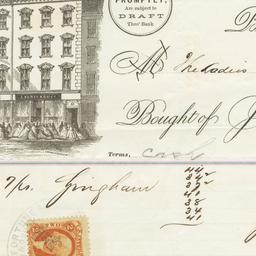 PROMPTLY,
Are subject to
DRAFT
Thro' Bank
B
M The Ladies
Bought of J
Terms, Cash
7/ps. Gingham
44
34²
37²
40
38
34
41